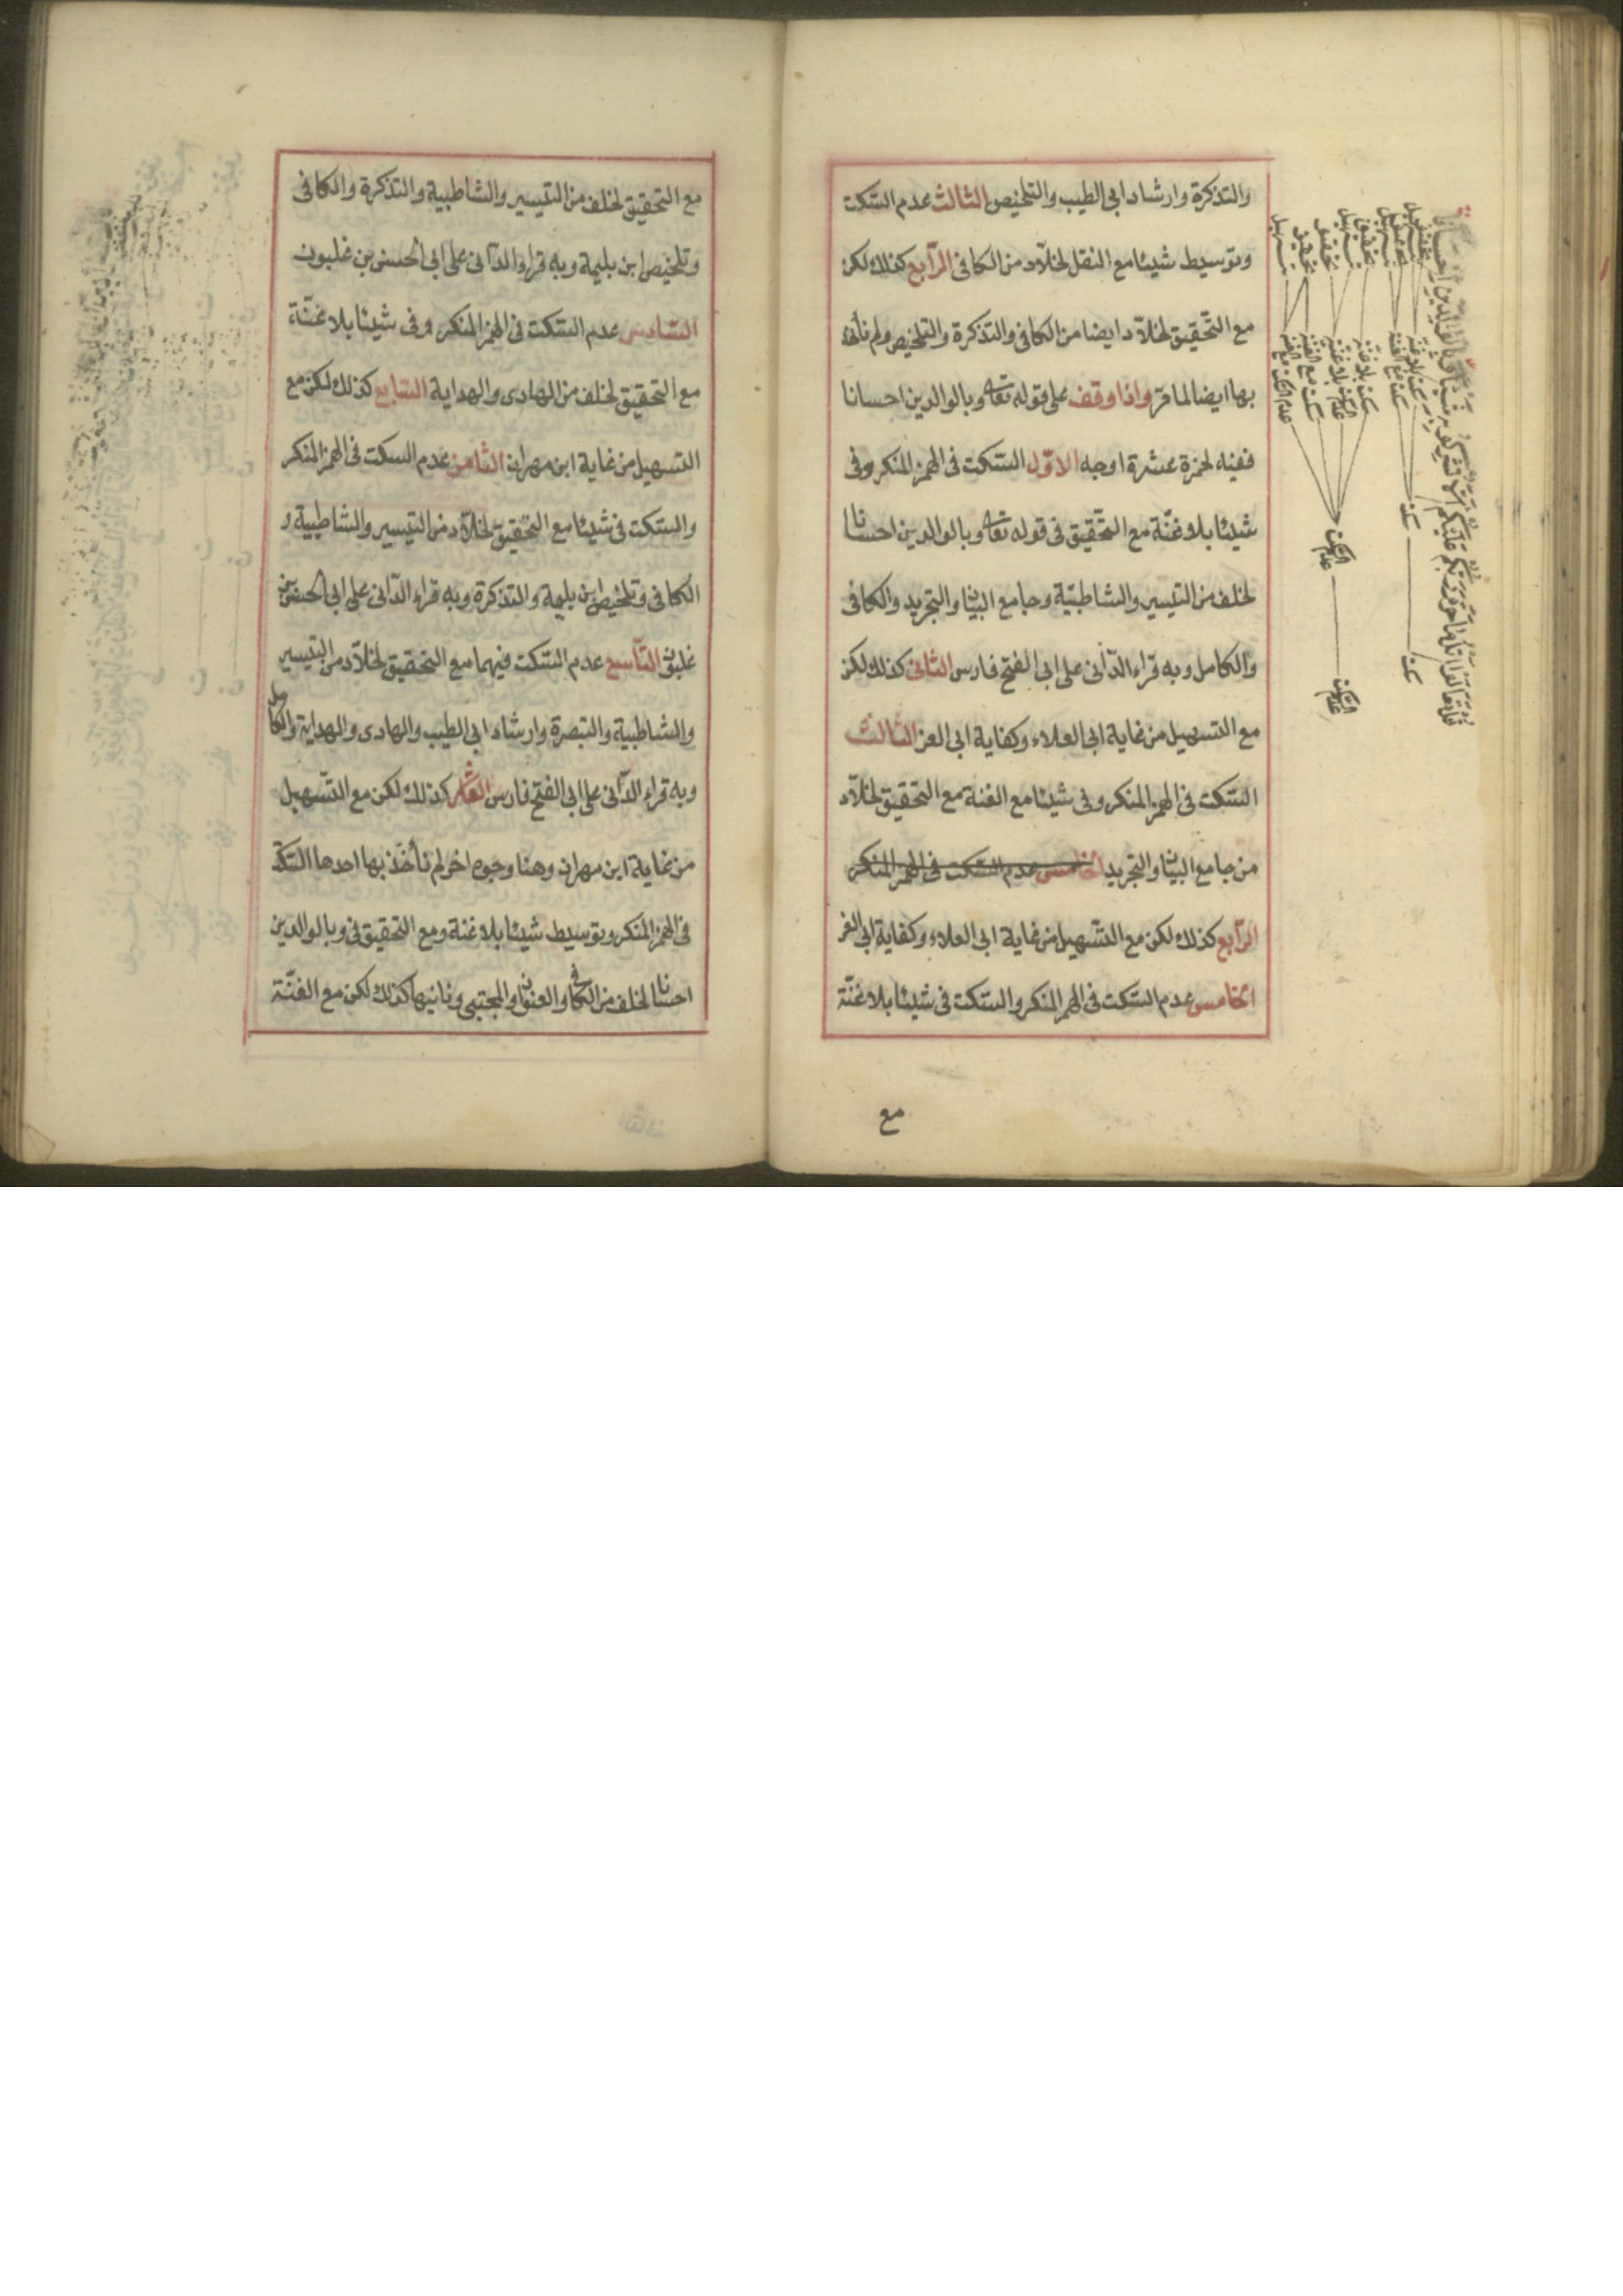 والتذكرة وارشاد ابى الطيب والتلخيص الثالث عدم السّكت
وتوسيط شيئا مع النقل لخلّاد من الكافى الرّابع كذلك لكن
مع التّحقيق لخلّاد ايضا من الكافى والتذكرة والتلخيص ولم نأخذ
بها ايضا لما مرّ واذا وقف على قوله تعا وبالوالدين احسانا
ففيه لحمزة عشرة اوجه الاوّل السّكت فى الهمز المنكر وفى
شيئا بلا غنّة مع التّحقيق فى قوله تعا وبالوالدين احسانا
لخلف من التيسير والشاطبيّة وجامع البيان والتجريد والكافى
والكامل وبه قراء الدّانى على ابى الفتح فارس الثانى كذلك لكن
مع التسهيل من غاية ابى العلاء وكفاية ابى العز الثالث
السّكت فى الهمز المنكر وفى شيئا مع الغنة مع التحقيق لخلّاد
من جامع البيان والتجريد الخامس عدم السّكت فى الهمز المنكر
الرّابع كذلك لكن مع التّسهيل من غاية ابى العلاء وكفاية ابى العز
الخامس عدم السّكت فى الهمز المنكر والسّكت فى شيئا بلا غنّة
مع
قل تعالوا اتل ما حرم ربكم عليكم الا تشركوا به شيئا وبالوالدين احسانا
سكت
سكت
عدم السكت
عدم السكت
مع التحقيق لخلف من التيسير والشاطبية والتذكرة والكافى
وتلخيص ابن بليمة وبه قراء الدّانى على ابى الحسن بن غلبون
السّادس عدم السّكت فى الهمز المنكر وفى شيئا بلا غنّة
مع التحقيق لخلف من الهادى والهداية السّابع كذلك لكن مع
التسهيل من غاية ابن مهران الثامن عدم السكت فى الهمز المنكر
والسّكت فى شيئا مع التحقيق لخلّاد من التيسير والشاطبية و
الكافى وتلخيص ابن بليمة والتذكرة وبه قراء الدّانى على ابى الحسن بن
غلبون التّاسع عدم السّكت فيهما مع التحقيق لخلّاد من التيسير
والشاطبية والتبصرة وارشاد ابى الطيب والهادى والهداية والكامل
وبه قراء الدّانى على ابى الفتح فارس العاشر كذلك لكن مع التّسهيل
من غاية ابن مهران وهنا وجوه اخر لم نأخذ بها احدها السّكت
فى الهمز المنكر وتوسيط شيئا بلا غنة ومع التحقيق فى وبالوالدين
احسانا لخلف من الكافى والعنوان والمجتبى وثانيها كذلك لكن مع الغنّة